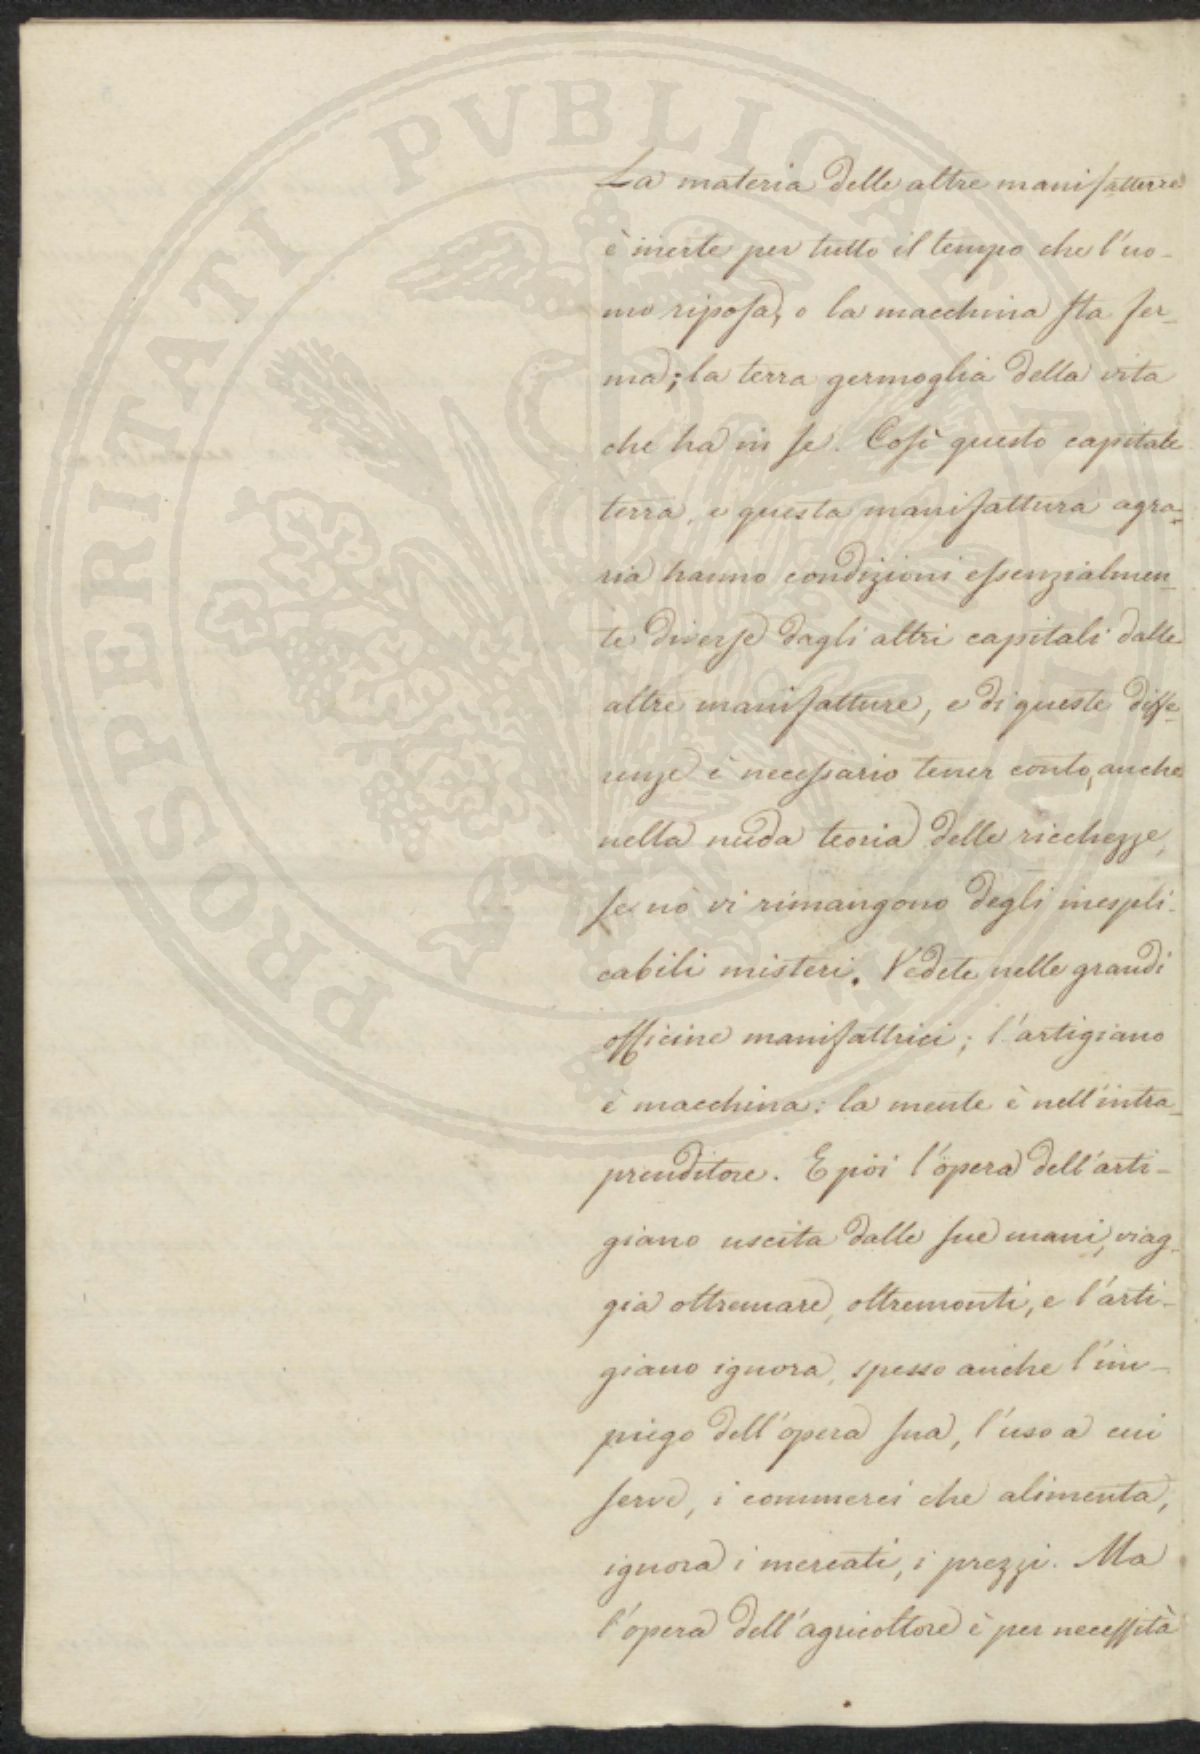 La materia delle altre manifatture
è inerte per tutto il tempo che l'uo-
mo riposa, o la macchina sta fer-
ma; la terra germoglia della vita
che ha in se. Così questo capitale
terra, e questa manifattura agra-
ria hanno condizioni essenzialmen-
te diverse dagli altri capitali dalle
altre manifatture, e di queste diffe-
renze è necessario tener conto, anche
nella nuda teoria delle ricchezze,
se nò vi rimangono degli inespli-
cabili misteri. Vedete nelle grandi
officine manifattrici; l'artigiano
è macchina: la mente è nell'intra-
prenditore. E poi l'opera dell'arti-
giano uscita dalle sue mani, viag-
gia oltremare, oltremonti, e l'arti-
giano ignora, spesso anche l'im-
piego dell'opera sua, l'uso a cui
serve, i commerci che alimenta,
ignora i mercati, i prezzi. Ma
l'opera dell'agricoltore è per necessità
PROSPERITATI PVBLICAE